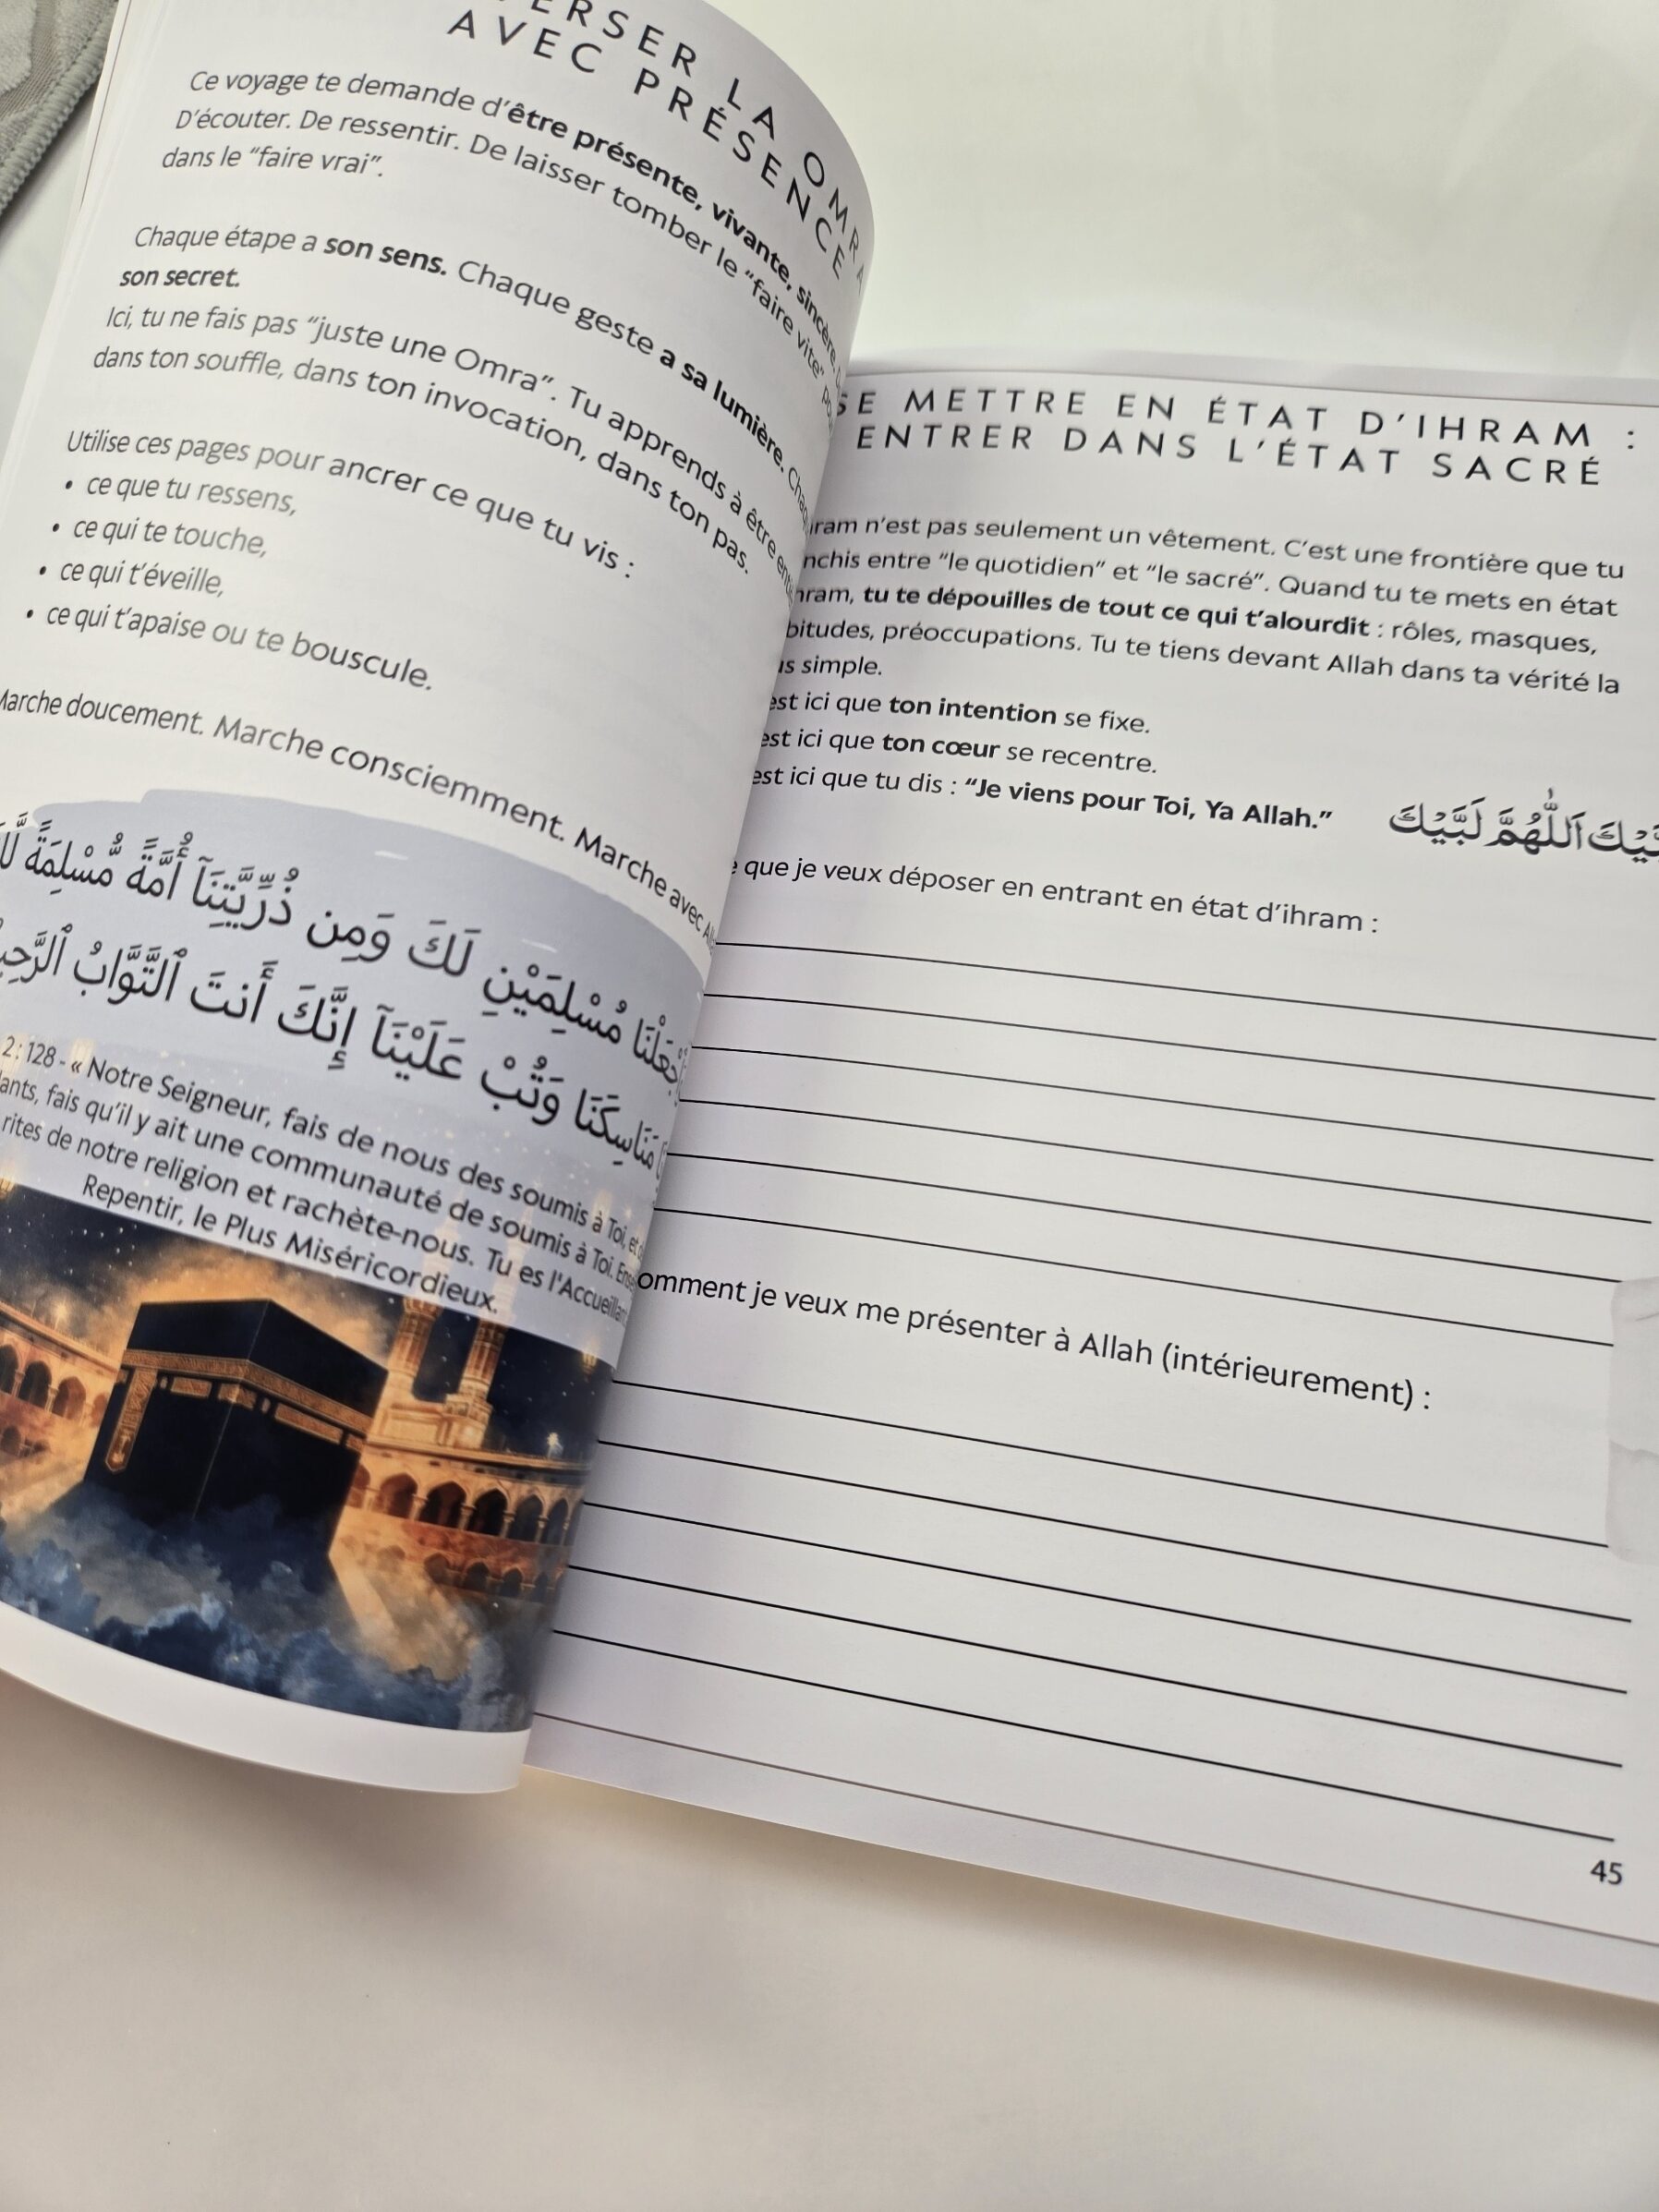 LA OMRA
AVEC PRÉSENCE
Ce voyage te demande d'être présente, vivante, sincère.
D'écouter. De ressentir. De laisser tomber le "faire vite"
dans le "faire vrai".
Chaque étape a son sens. Chaque geste a sa lumière.
son secret.
Ici, tu ne fais pas "juste une Omra". Tu apprends à être
dans ton souffle, dans ton invocation, dans ton pas.
Utilise ces pages pour ancrer ce que tu vis :
• ce que tu ressens,
• ce qui te touche,
• ce qui t'éveille,
• ce qui t'apaise ou te bouscule.
Marche doucement. Marche consciemment. Marche avec
مُسْلِمَيْنِ لَكَ وَمِن ذُرِّيَّتِنَآ أُمَّةً مُّسْلِمَةً
مَنَاسِكَنَا وَتُبْ عَلَيْنَآ إِنَّكَ أَنتَ ٱلتَّوَّابُ
2 : 128 - « Notre Seigneur, fais de nous des soumis à Toi, et
fais qu'il y ait une communauté de soumis à Toi.
rites de notre religion et rachète-nous. Tu es l'Accueillant
Repentir, le Plus Miséricordieux.
SE METTRE EN ÉTAT D'IHRAM :
ENTRER DANS L'ÉTAT SACRÉ
n'est pas seulement un vêtement. C'est une frontière que tu
entre "le quotidien" et "le sacré". Quand tu te mets en état
tu te dépouilles de tout ce qui t'alourdit : rôles, masques,
préoccupations. Tu te tiens devant Allah dans ta vérité la
simple.
ici que ton intention se fixe.
ici que ton cœur se recentre.
ici que tu dis : "Je viens pour Toi, Ya Allah."
اَللّٰهُمَّ لَبَّيْكَ
que je veux déposer en entrant en état d'ihram :
je veux me présenter à Allah (intérieurement) :
45